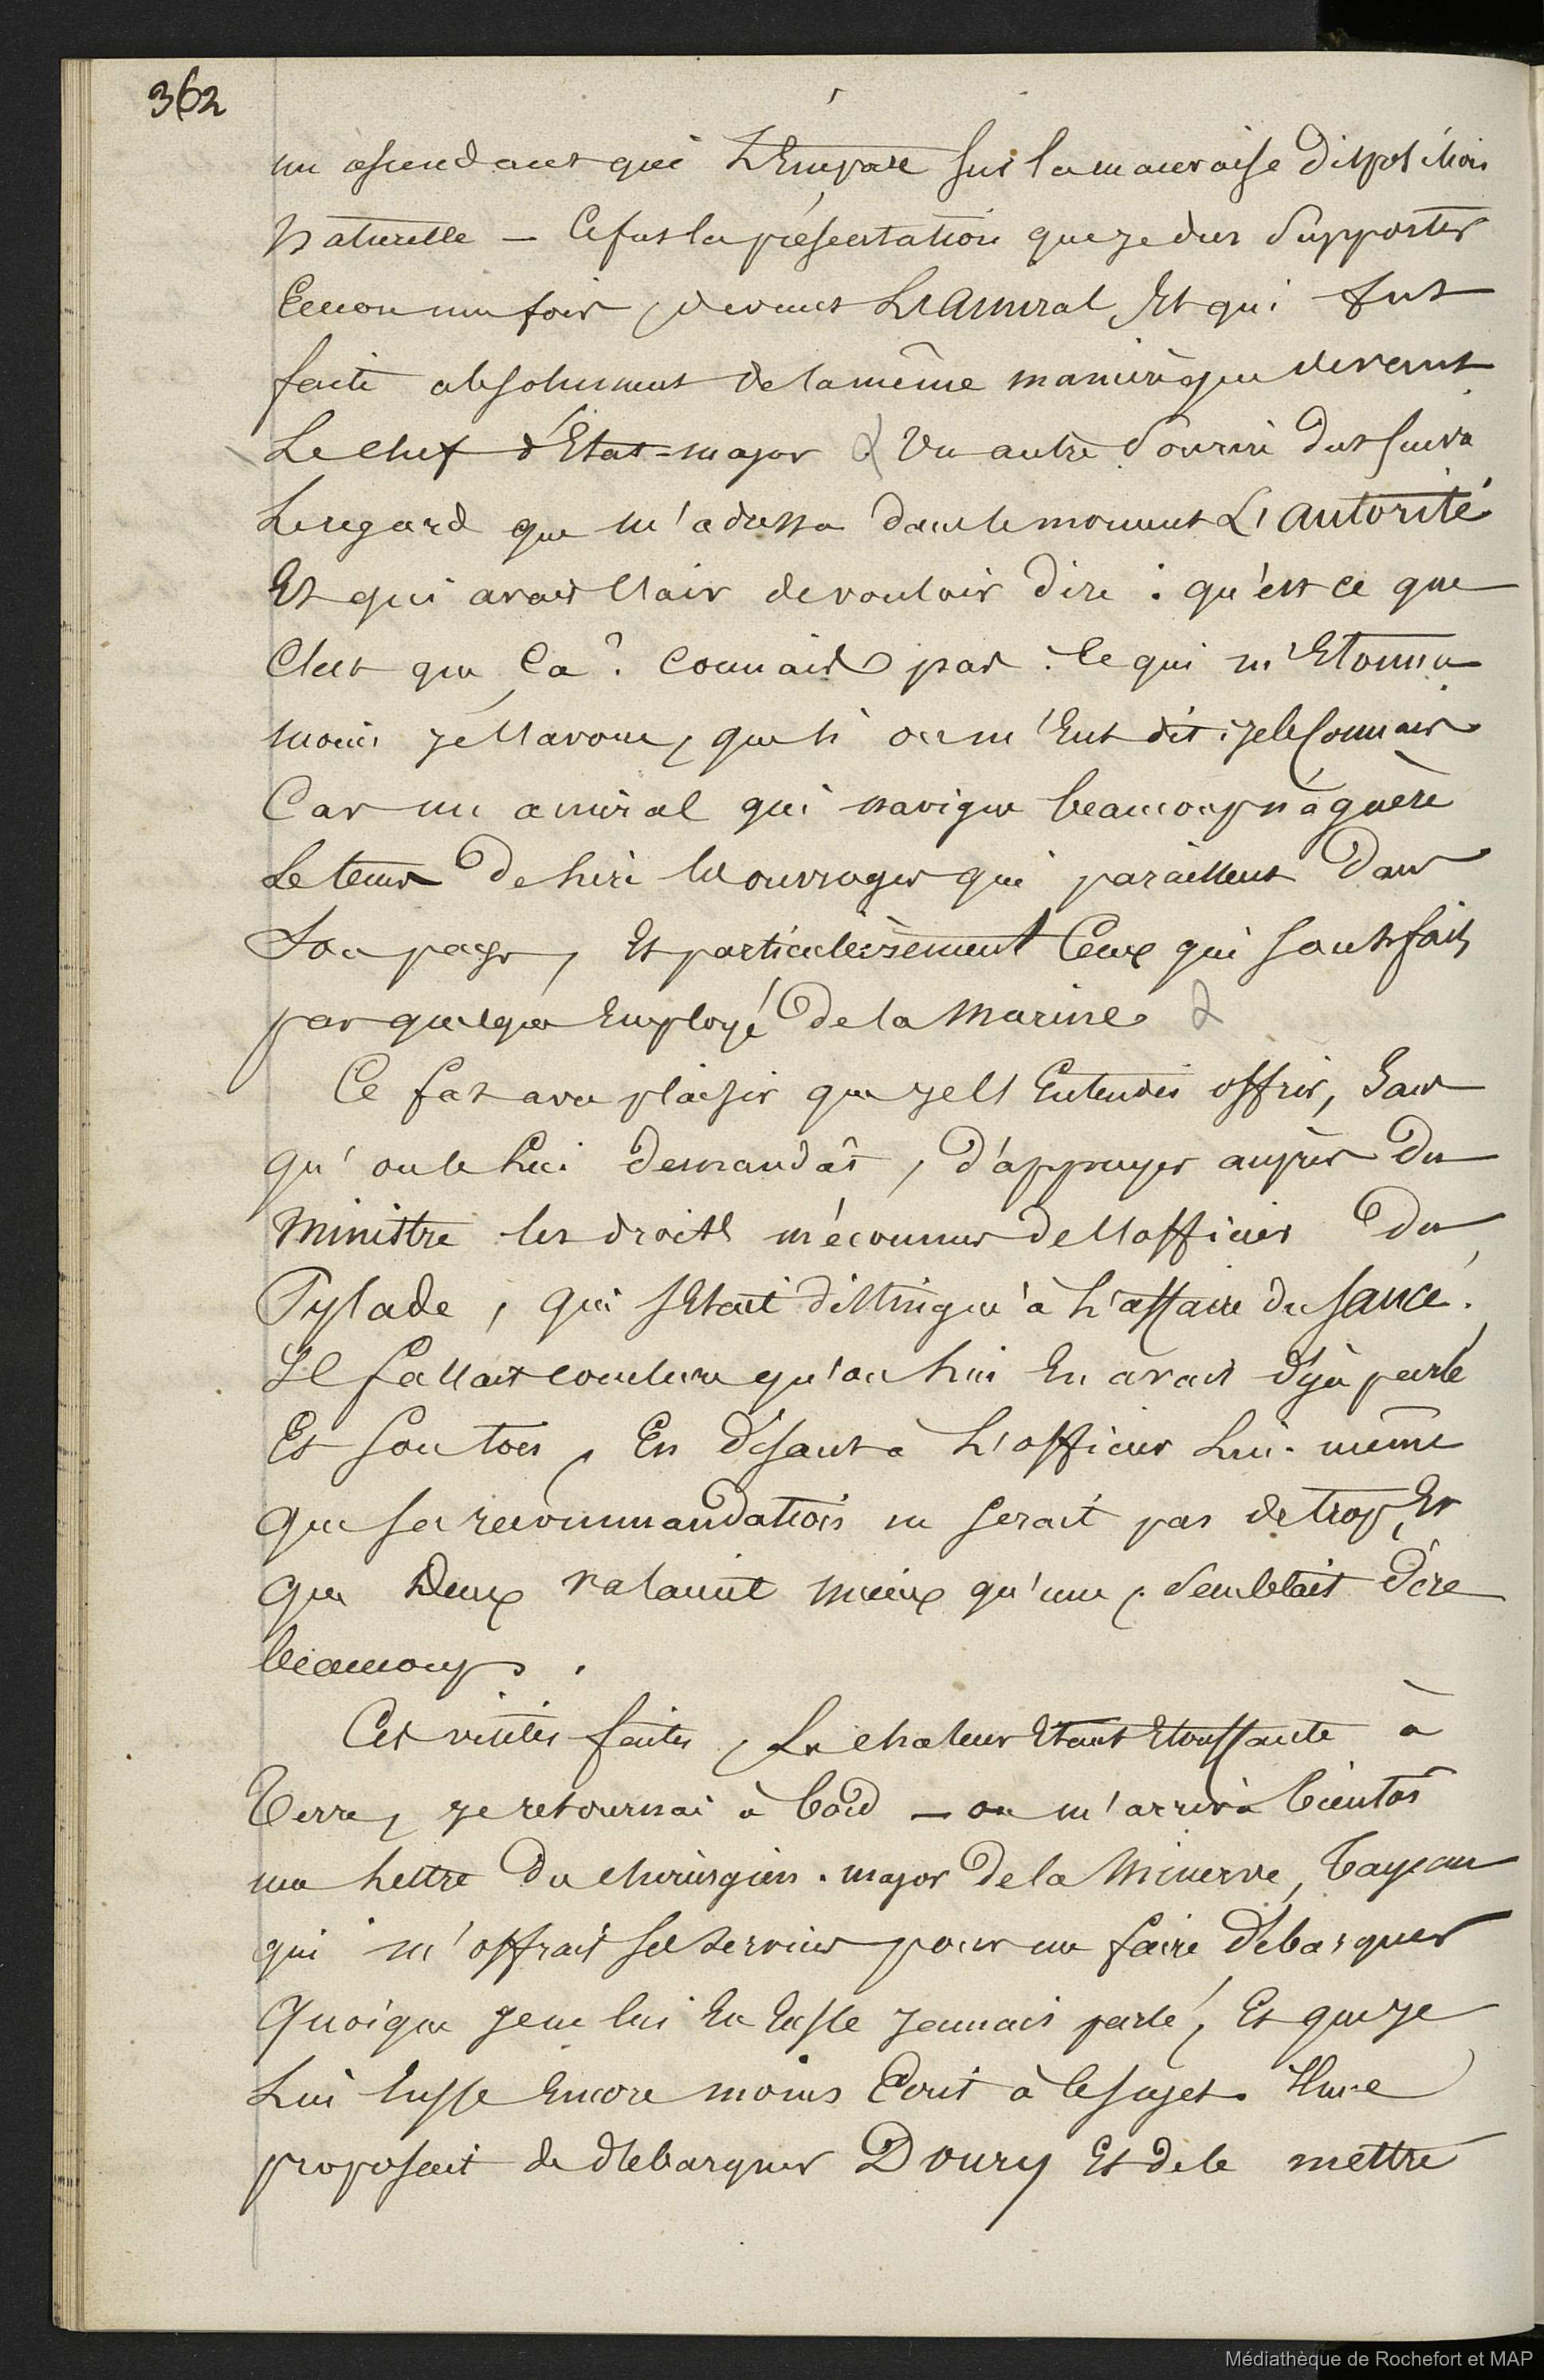 362
un ascendant qui L'Empare sur la mauvaise disposition
naturelle – Ce fut la présentation que je dus supporter
Encore une fois, devant L'amiral, Et qui fut
faite absolument de la même manière que devant
Le Chef d'Etat-major Un autre sourire dut suivre
Le regard que m'adressa dans le moment L'autorité
Et qui avait l'air de vouloir dire : qu'est ce que
c'est que ça ? Connais pas : Ce qui m'Etonna
moins je l'avoue, que si on m'Eut dit : je le Connais
Car un amiral qui navigue beaucoup n'a guère
Le tems de lire les ouvrages qui paraissent dans
Son pays, Et particulièrement Ceux qui sont faits
par quelque Employé de la Marine
Ce fut avec plaisir que je l'Entendis offrir, Sans
qu'on le lui demandât, d'appuyer auprès du
Ministre les droits méconnus de l'officier du
Pylade, qui s'Etait distingué à l'affaire du Sancé.
Il fallait conclure qu'on lui En avait déjà parlé
Et son ton, En disant à L'officier Lui-même
que sa recommandation ne serait pas de trop, Et
que Deux valaient mieux qu'une, Semblait dire
beaucoup.
Ces visites faites, La chaleur Etant Etouffante à
Terre, je retournai à bord – on m'arriva bientôt
une Lettre du chirurgien-major de la Minerve,
qui m'offrait ses services pour me faire débarquer
Quoique je ne lui En Eusse jamais parlé, Et que je
Lui Eusse Encore moins Ecrit à ce sujet. Il me
proposait de débarquer Doury Et de le mettre
Médiathèque de Rochefort et MAP